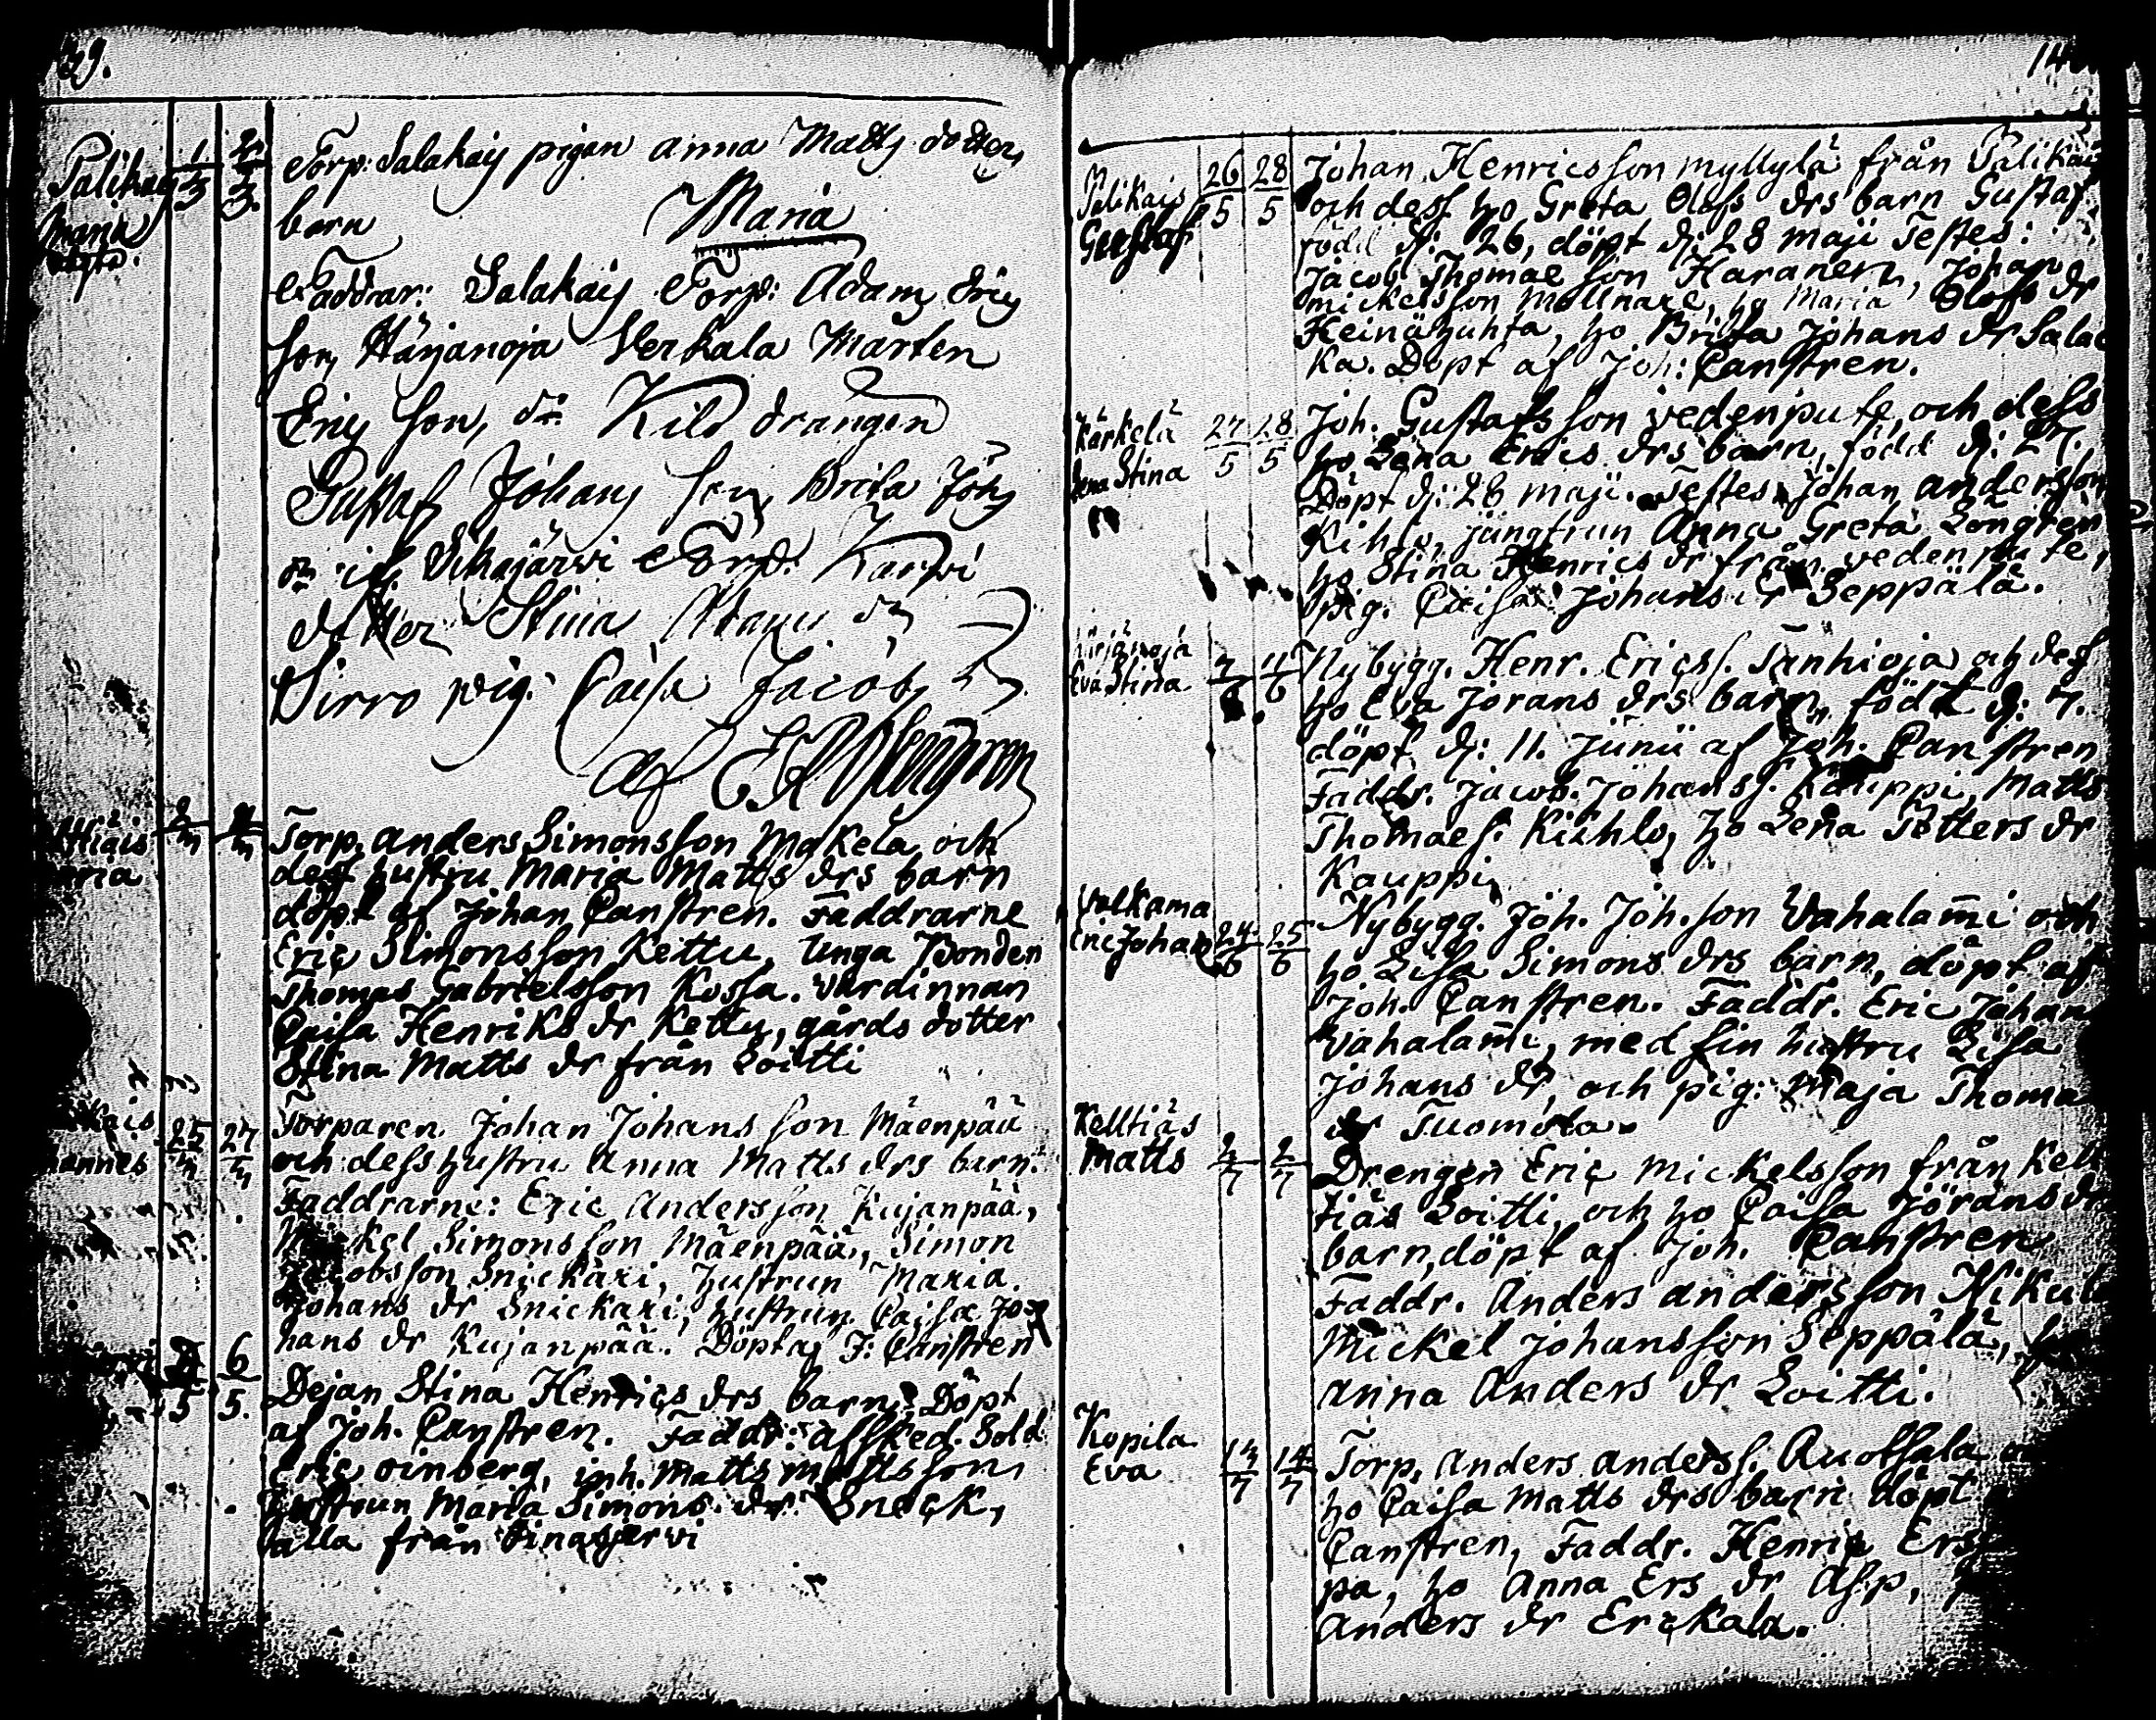 39.
Palikais
Maria
1/3
2/3.
Torp: Salakais pigan anna Matts dotters
barn Maria
Faddrar: Salakais Torp: Adam Erics
son, Härjanoja Verkala Mårten
Erics son, dr Kilo drängen
Gustaf Johans son, Brita Joh:
dr Sikajärwi Torp. Karwi
dotter Stina Adams dr
Sirro pig. Caisa Jacobs dr
af
Torp. anders Simonsson Makela och
dess hustru Maria Matts drs barn
döpt af Johan Canstren. Faddrarne
Eric Simonsson Kettu, Unga Bonden
Thomas Gabrielsson Kossa. värdinnan
Caisa Henriks dr Kettu, gårds dotter
Stina Matts dr från Loitti
25
27
Torparen Johan Johans son Mäenpää
och dess hustru Anna Matts drs barn.
Faddrarne: Eric Andersson Kujanpää,
Mickel Simonsson Mäenpää, Simon
Jacobsson Snickari, hustrun Maria
Johans dr Snickari, hustrun Caisa Jo=
hans dr Kujanpää. Döpt af J: Canstren
5
6/5.
Dejan Stina Henrics drs barn. Döpt
af Joh. Canstren. Faddr: afsked. Sold
Eric oinberg, inh. Matts Mattsson,
hustrun Maria Simons dr Sneck,
alla från Pinasjerwi
14
Palikais
Gustaf
26/5
28/5
Johan Henricsson Myllylä från Palikais
och dess ho Greta Olofs drs barn Gustaf
född d: 26, döpt d: 28 maji Testes:
Jacob Thomae son Haranen, Johan
Mickelsson Mollnare, ho Maria Olofs dr
Heinähuhta, ho Brita Johans dr Sala
ka. Döpt af Joh: Canstren.
Kärkelä
Lena Stina
27/5
28/5
Joh. Gustafsson vedenpute, och dess
ho Lena Erics drs barn, född d: 27.
Döpt d: 28 maji. Testes Johan andersson
Kihlo, jungfrun Anna Greta Longren
ho Stina Henrics dr från vedenpute,
pig. Caisa Johans dr Seppälä.
Härjänoja
Eva Stina
7/6
11/6
Nybygg. Henr. Ericss. Tanhioja och dess
ho Eva Jorans drs barn, född d: 7.
döpt d: 11. Junii af Joh. Canstren
Faddr. Jacob Johanss. Kauppi, Matts
Thomaes. Kihlo, ho Lena Petters dr
Kauppi
Valkama
Eric Johan
24/6
25/6
Nybygg. Joh. Joh.son Vahalam̄i och
ho Lisa Simons drs barn, döpt af
Joh. Canstren. Faddr. Eric Johan
Vahalam̄i, med sin hustru Lisa
Johans dr, och pig: Maja Thoma
dr Tuomola.
Kelltiäs
Matts
2/7
2/7
Drengen Eric Mickelsson från Kell
tiäs Loitti, och ho Caisa Jörans dr
barn, döpt af Joh. Canstren
Faddr. Anders andersson Nikula
Mickel Johansson Seppälä,
anna Anders dr Loitti.
Kopila
Eva
13/7
14/7
Torp. Anders anderss. Auotsala
ho Caisa Matts drs barn döpt
Canstren, Faddr. Henric Ers
pa, ho Anna Ers dr Asp,
Anders dr Erckala.